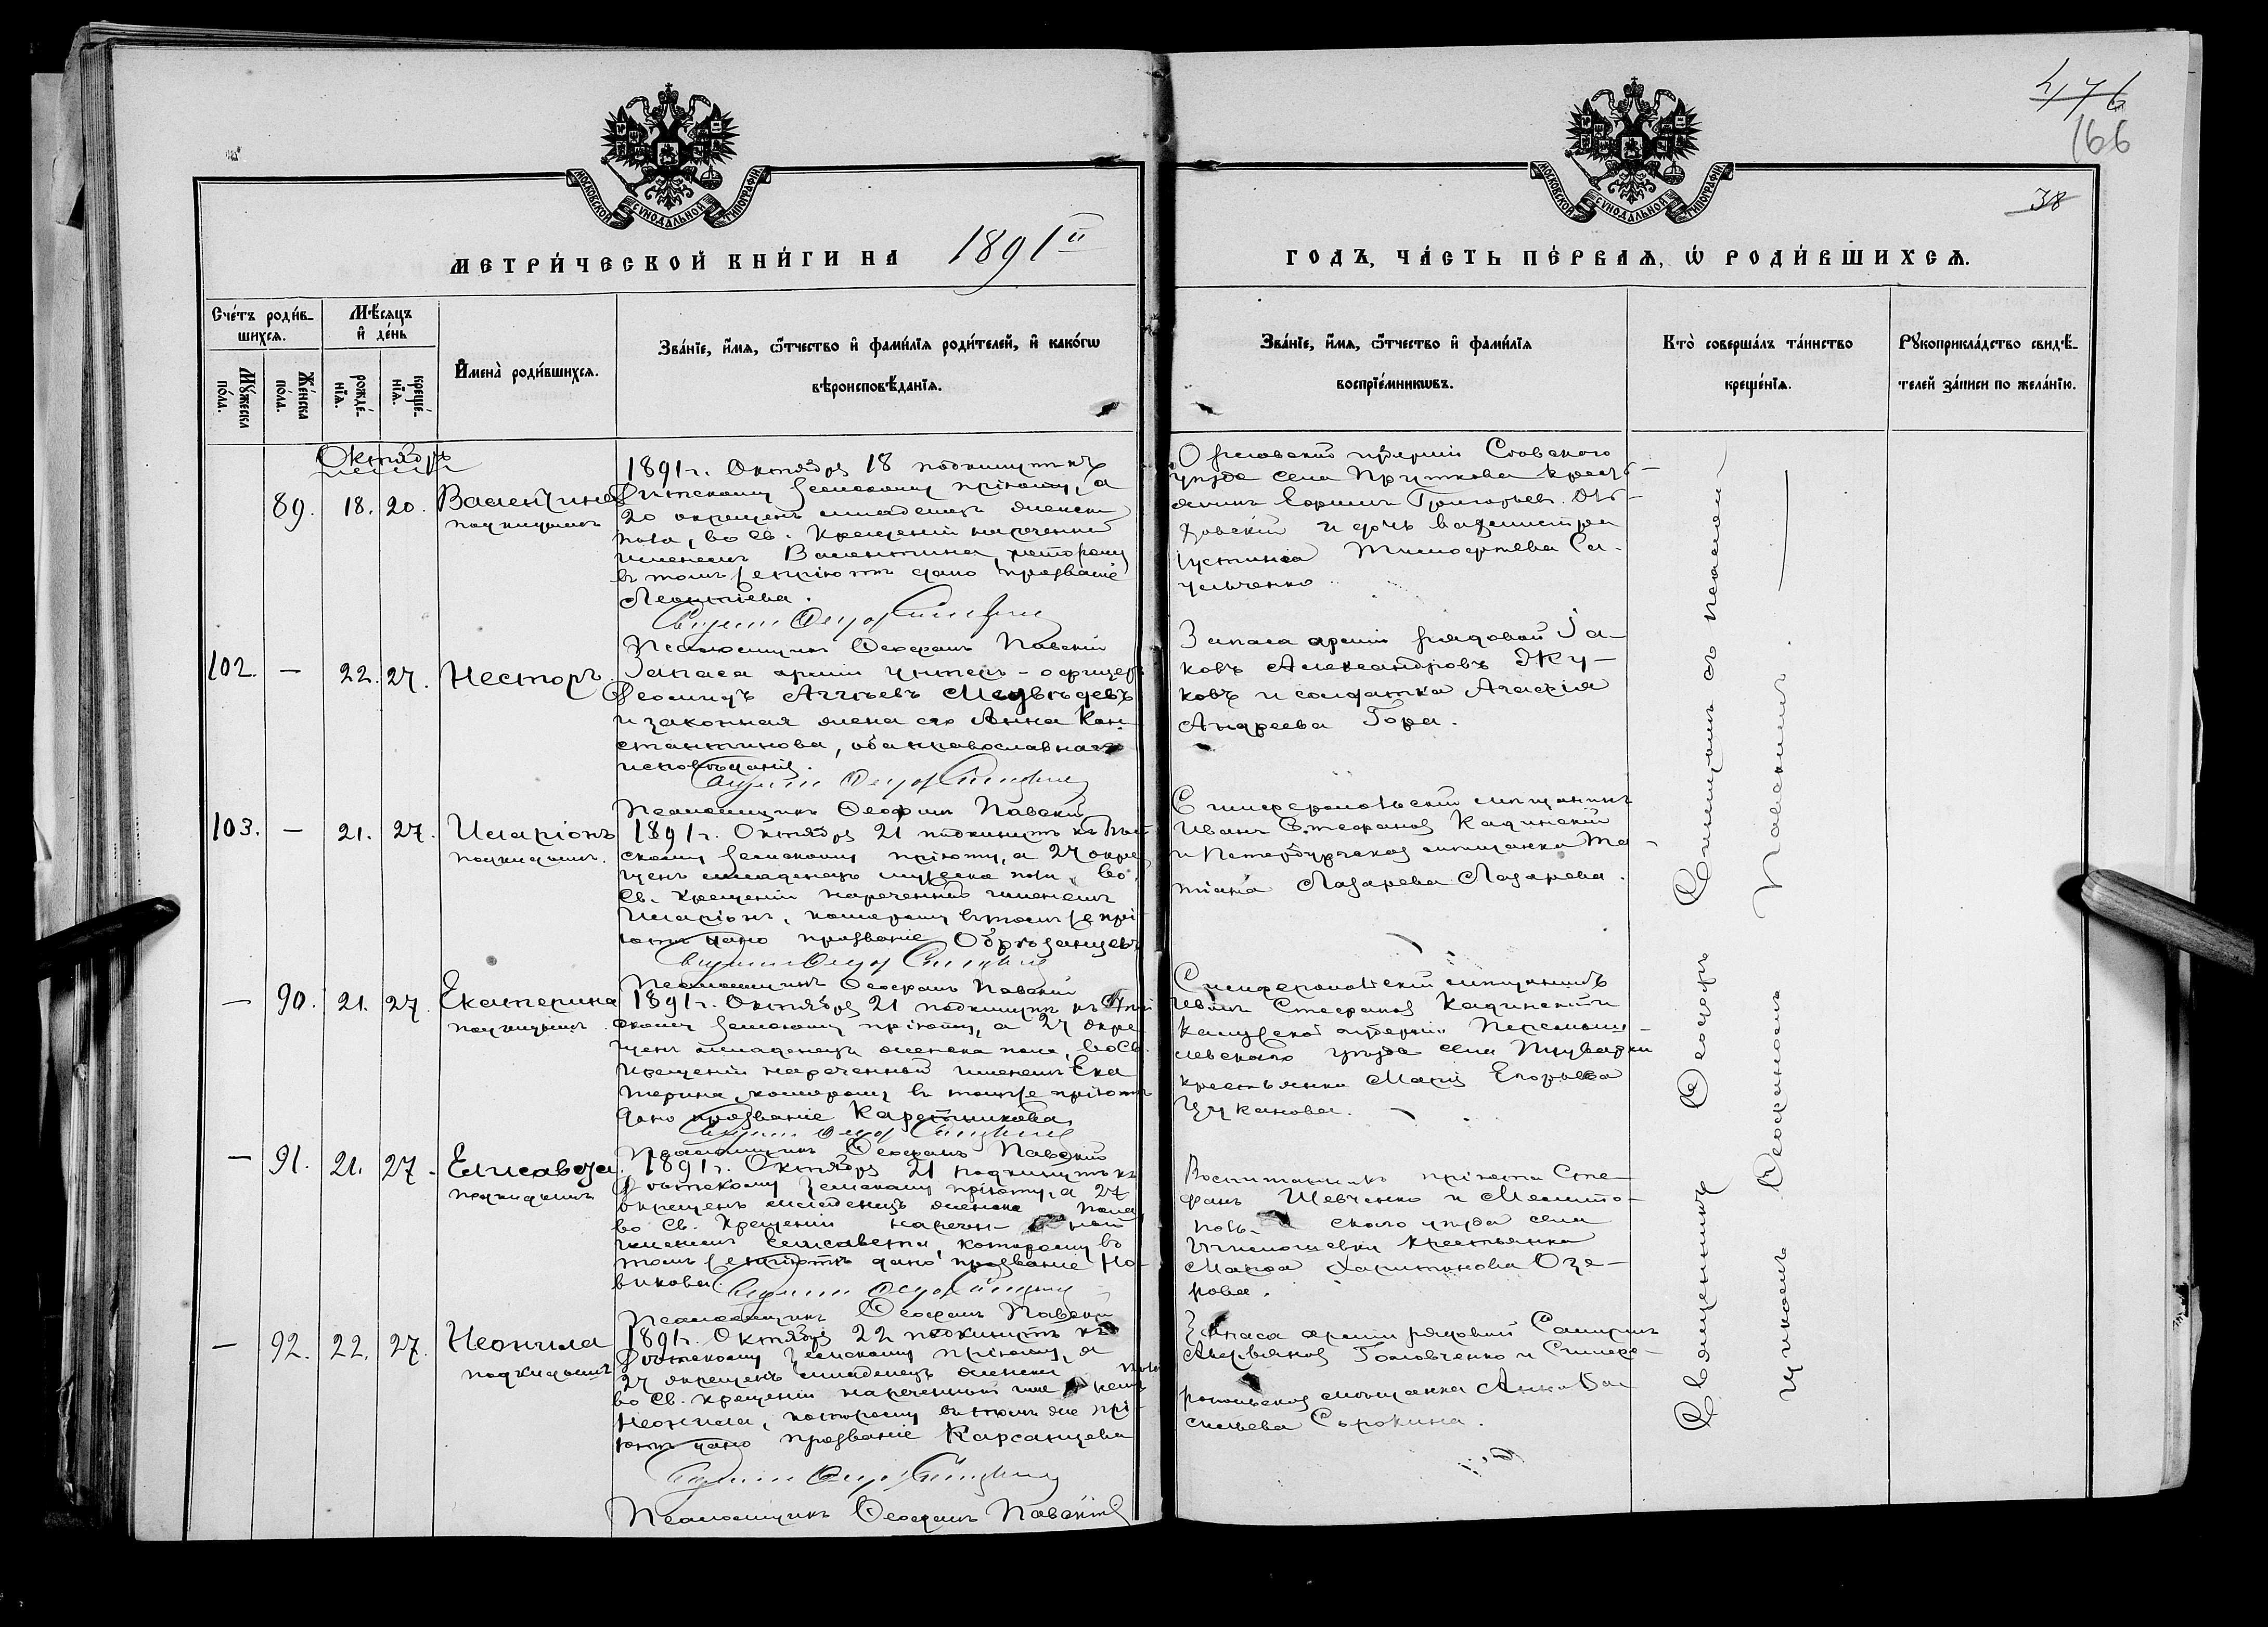 476
166
38
МОСКОВСКОЙ СѴНОДАЛЬНОЙ ТИПОГРАФІИ
МОСКОВСКОЙ СѴНОДАЛЬНОЙ ТИПОГРАФІИ
МЕТРИ́ЧЕСКОЙ КНИ́ГИ НА 1891й
ГОДЪ, ЧА́СТЬ ПЕ́РВАЯ, Ѡ҆ РОДИ́ВШИХСЯ.
Сче́тъ роди́в-
шихся.
Мѣ́сяцъ
и҆ де́нь
Мꙋ́жеска
по́ла.
Же́нска
по́ла.
рожде́-
нїя.
креще́-
нїя.
И҆мена̀ роди́вшихся.
Зва́нїе, и҆́мя, ѻ҆́тчество и҆ фами́лїя роди́телей, и҆ како́гѡ
вѣроисповѣ́данїя.
Зва́нїе, и҆́мя, ѻ҆́тчество и҆ фами́лїя
воспрїе́мникѡвъ.
Кто̀ соверша́лъ та́инство
креще́нїя.
Рꙋкоприкла́дство свидѣ́-
телей за́писи по жела́нїю.
Октябрь
89. 18. 20. Валентина
подкидышъ
1891 г. Октября 18 подкинутъ къ
земскому пріюту, а
20 окрещенъ младенецъ женска
пола, во св. Крещеніи нареченный
именемъ Валентина, которому
въ томъ же пріютѣ дано прозваніе
Леонтіева.
Псаломщикъ Ѳеофанъ Павскій
Орловской губерніи Сѣвского
уѣзда села Пруткова кресть-
янинъ Ефимъ Григорьев.
и дочь вахмистра
Устинія Тимофеева Са-
мученко
102. – 22. 27. Несторъ.
Запаса арміи унтеръ-офицеръ
Леонидъ Аггѣевъ Медвѣдевъ
и законная жена его Анна Кон-
стантинова, оба православнаго
исповѣданія.
Псаломщикъ Ѳеофанъ Павскій
Запаса арміи рядовой Іа-
ковъ Александровъ Жу-
ковъ и солдатка Агафія
Андреева Гора.
103. – 21. 27. Иларіонъ
подкидышъ.
1891 г. Октября 21 подкинутъ къ
скому земскому пріюту, а 27 окре
щенъ младенецъ мужеска пола, во
св. Крещеніи нареченный именемъ
Иларіонъ, которому въ томъ же прі-
ютѣ дано прозваніе Обрѣзанцевъ
Псаломщикъ Ѳеофанъ Павскій
Симферопольскій мѣщанинъ
Иванъ Стефановъ Кадинскій
и Петербургская мѣщанка Та-
тіана Лазарева Лазарева.
– 90. 21. 27. Екатерина
подкидышъ.
1891 г. Октября 21 подкинутъ къ
скому земскому пріюту, а 27 окре
щенъ младенецъ женска пола, во св.
Крещеніи нареченный именемъ Ека
терина, которому въ томъ же пріютѣ
дано прозваніе Каретникова
Псаломщикъ Ѳеофанъ Павскій
Симферопольскій мѣщанинъ
Иванъ Стефановъ Кадинскій и
Калужской губерніи Перемыш-
левскаго уѣзда села
крестьянка Марія Егорьева
Цуканова.
– 91. 21. 27. Елисавета.
подкидышъ
1891 г. Октября 21 подкинутъ къ
земскому пріюту, а 27
окрещенъ младенецъ женска пола,
во св. Крещеніи наречен- ный
именемъ Елисавета, которому въ
томъ же пріютѣ дано прозваніе Но-
викова.
Псаломщикъ Ѳеофанъ Павскій
Воспитанникъ пріюта Сте-
фанъ Шевченко и Мелито-
поль- скаго уѣзда села
крестьянка
Марѳа Харитонова Озе-
рова.
– 92. 22. 27. Неонила
подкидышъ
1891 г. Октября 22 подкинутъ къ
земскому пріюту, а
27 окрещенъ младенецъ женска пола
во св. Крещеніи нареченный име немъ
Неонила, которому въ томъ же прі-
ютѣ дано прозваніе Карсанцева
Псаломщикъ Ѳеофанъ Павскій
Запаса арміи рядовой
Головченко и Симфе-
ропольская мѣщанка Анна Ва-
сильева Сорокина.
Священникъ Ѳеодоръ Синицынъ съ псалом-
щикомъ Ѳеофаномъ Павскимъ.